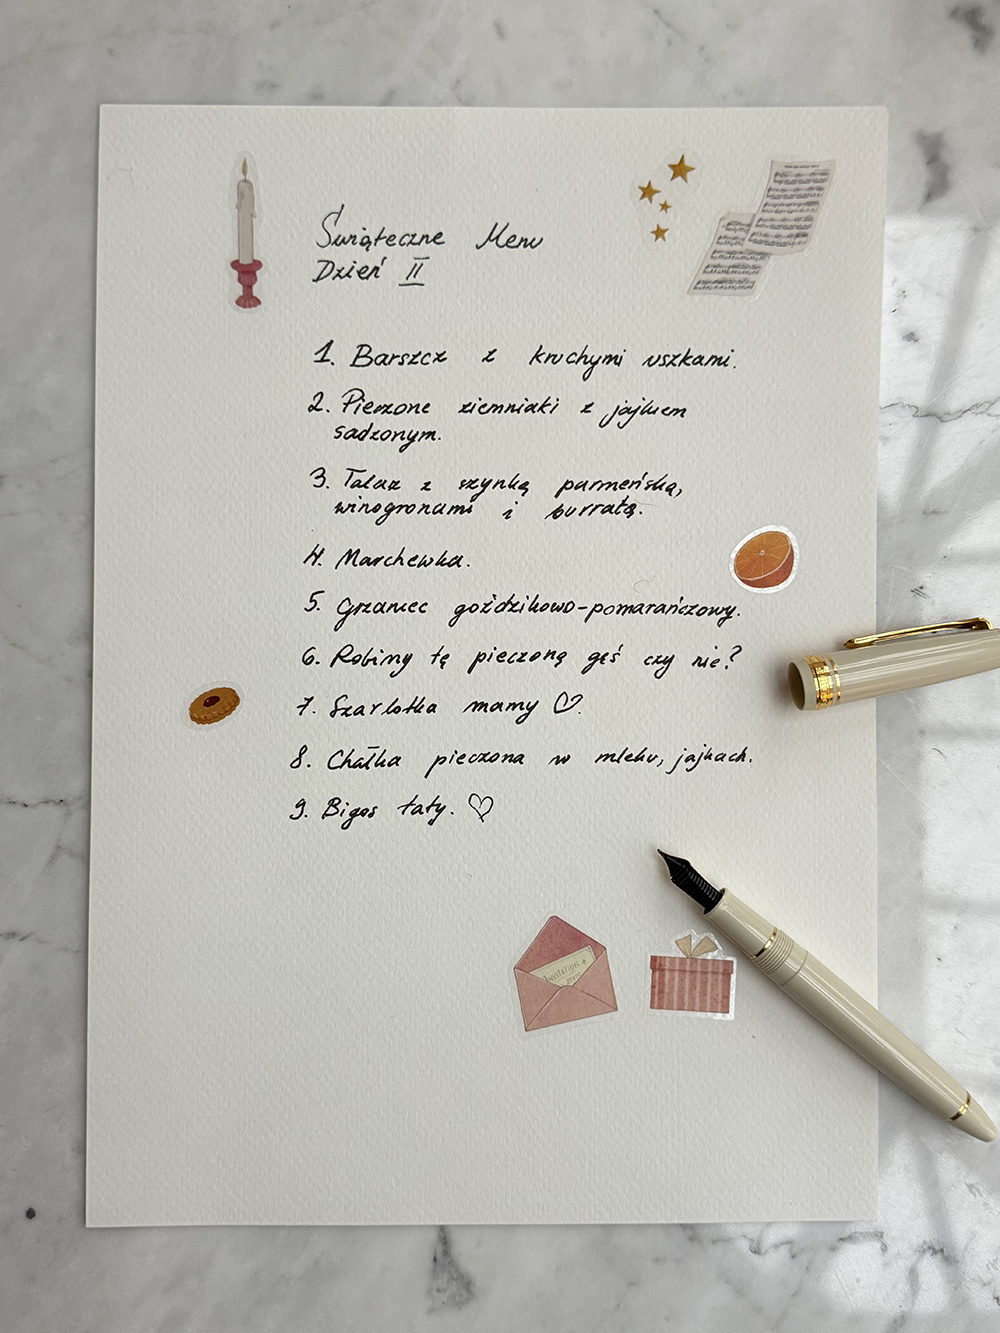 Świąteczne Menu
Dzień II
1. Barszcz z kruchymi uszkami.
2. Pieczone ziemniaki z jajkiem
sadzonym.
3. Talerz z szynką parmeńską,
winogronami i burratą.
4. Marchewka.
5. Grzaniec goździkowo-pomarańczowy.
6. Robimy tę pieczoną gęś czy nie?
7. Szarlotka mamy ♡.
8. Chałka pieczona w mleku, jajkach.
9. Bigos taty. ♡
Invitation